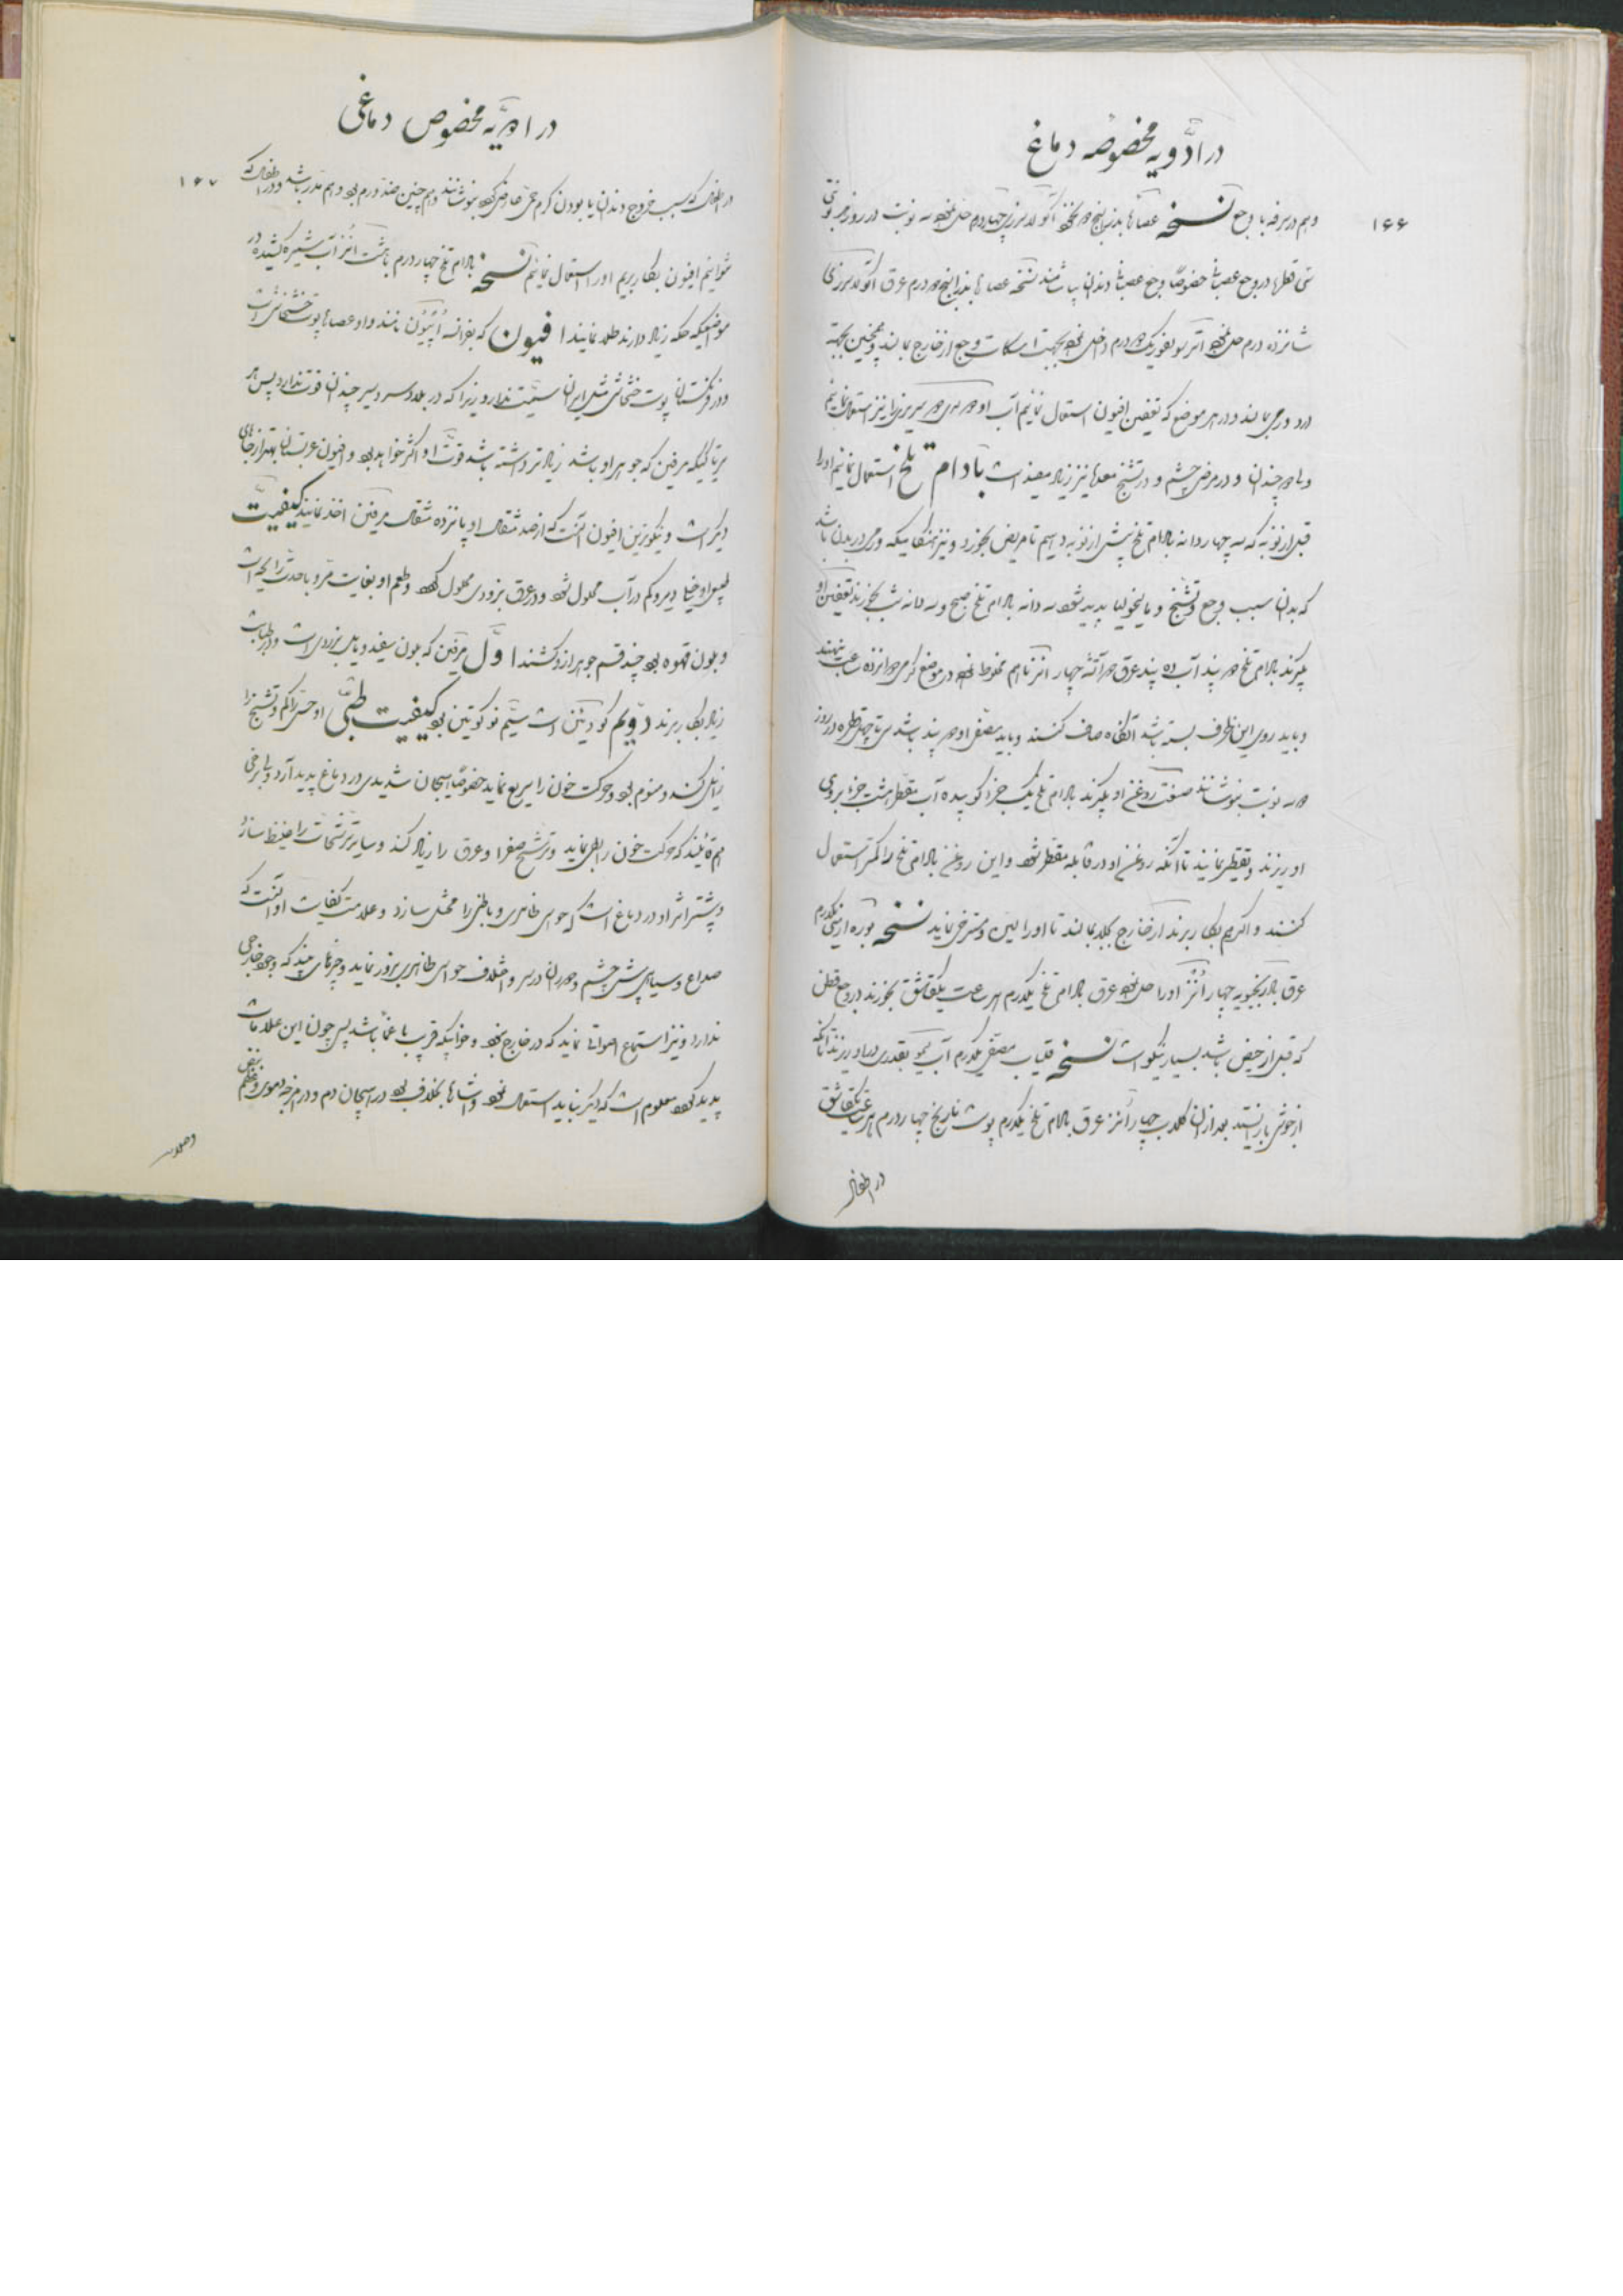 در ادویه مخصوصه دماغ
۱۶۶
وهم در سرفه با وجع نسخه عصاره بذرالبنج دو نخود آکو لدسرزی چهار درم حل نموده سه نوبت در روز هر نوبتی
سی قطره در وجع عصبانی خصوصا وجع عصبانی دندان بپاشند نسخه عصاره بذرالبنج دو درم عرق آکو لدسرزی
شانزده درم حل نموده اتر سولفوریک دو درم داخل نموده بجهت اسکات وجع از خارج بمالند و همچنین بجهة
درد ورمی بمالند و در هر موضع که تعفین افیون استعمال نمائیم آب او
و در مرض چشم و در تشنج معده نیز زیاد مفید است بادام تلخ استعمال نمائیم او را
قبل از نوبه که سه چهار دانه بادام تلخ پیش از نوبه دهیم تا مریض بخورد و نیز هنگامیکه در بدن باشد
که بدان سبب وجع و تشنج و مالیخولیا پدید شود سه دانه بادام تلخ صبح و سه دانه شب بخورند تعفین او
بگیرند بادام تلخ دو پند آب ده پند عرق دو آتشه چهار انز باهم مخلوط نموده در موضع گرمی دوازده ساعت بنهند
و باید روی این ظرف بسته باشد آنگاه صاف کنند و باید مصفی او دو پند باشد سی تا چهل قطره در روز
دو سه نوبت بنوشانند صنعت روغن او بگیرند بادام تلخ یک جزء کوبیده آب مقطر هشت جزء بروی
او ریزند و تقطیر نمایند تا آنکه روغن او در قابله مقطر شود و این روغن بادام تلخ را کمتر استعمال
کنند و اگر هم بکار برند از خارج بجلد بمالند تا او را لین و مسترخی نماید نسخه بوره ارمنی یکدرم
عرق بادرنجبویه چهار انز او را حل نموده عرق بادام تلخ یکدرم هر ساعت یکقاشق بخورند در وجع قطن
که قبل از حیض باشد بسیار نیکو است نسخه قلیاب مصفی یکدرم آب لیمو بقدری در او ریزند تا آنکه
از جوش باز ایستد بعد از آن گلاب چهار انز عرق بادام تلخ یکدرم پوست نارنج چهار درم هر ساعت یکقاشق
در اطفال
در ادویه مخصوص دماغی
۱۶۷
در اطفال که بسبب خروج دندان یا بودن کرم حمی عارض گردد بنوشانند و هم چنین ضد ورم بود و هم مدر باشد و در اطفال که
نتوانیم افیون بکار بریم او را استعمال نمائیم نسخه بادام تلخ چهار درم با هشت انز آب شیره کشیده در
موضعیکه حکه زیاد دارند طلا نمایند افیون که بفرانسه اُپیُون نامند و او عصاره پوست خشخاش است
و در فرنگستان پوست خشخاش مثل ایران سمیت ندارد زیرا که در بلاد سردسیر چندان قوت ندارد پس هر
تریاکیکه مرفین که جوهر او باشد زیادتر داشته باشد قوت او اکثر خواهد بود و افیون عربستان بهتر از جاهای
دیگر است و نیکوترین افیون آنست که از صد مثقال او پانزده مثقال مرفین اخذ نمایند کیفیت
طبیعی او خیلی دیر و کم در آب محلول شود و در عرق بزودی محلول گردد و طعم او بغایت مر و با حدت رایحه است
و بلون قهوه بود چند قسم جوهر از او کشند اول مرفین که بلون سفید و مایل بزردی است و در طبابت
زیاد بکار برند دویم کودئین است سیم نرکوتین بود کیفیت طبی او حس را کم و تشنج را
زایل کند و منوم بود و حرکت خون را سریع نماید خصوصا هیجان شدیدی در دماغ پدید آرد ولی برخی
هم قائلند که حرکت خون را بطی نماید و ترشح صفرا و عرق را زیاد کند و سایر ترشحات را غلیظ سازد
و بیشتر اثر او در دماغ است که حواس ظاهری و باطنی را مختل سازد و علامت کفایت او آنست که
صداع و سیاهی پیش چشم و دوران در سر و اختلاف حواس ظاهری بروز نماید و چیزهای بیند که وجود خارجی
ندارد و نیز استماع اصواتی نماید که در خارج نبود و خوابیکه قریب باغما باشد پس چون این علامات
پدید گردد معلوم است که دیگر نباید استعمال نمود و اشاره بخلاف بود در هیجان دم و در امزجه دموی و عظم نبض